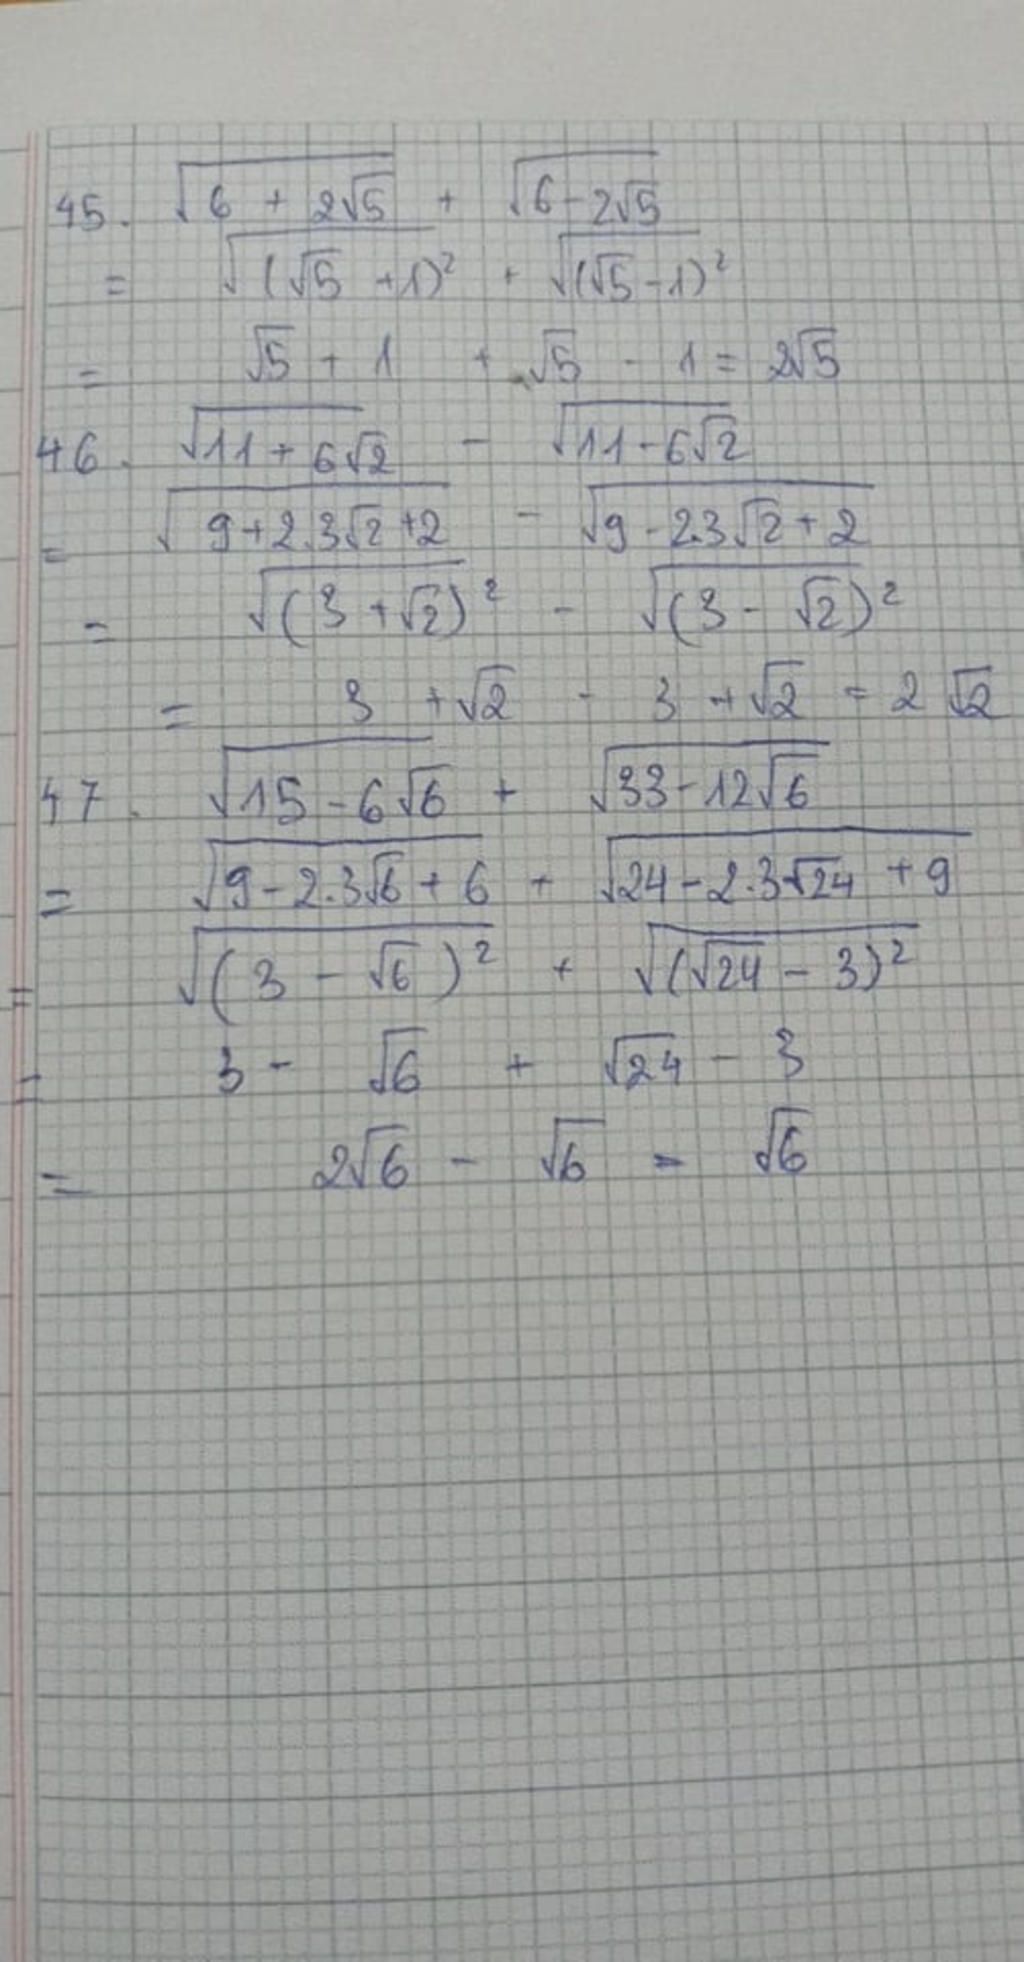 45. √(6 + 2√5) + √(6 - 2√5)
= √((√5 + 1)²) + √((√5 - 1)²)
= √5 + 1 + √5 - 1 = 2√5
46. √(11 + 6√2) - √(11 - 6√2)
= √(9 + 2.3√2 + 2) - √(9 - 2.3√2 + 2)
= √((3 + √2)²) - √((3 - √2)²)
= 3 + √2 - 3 + √2 = 2√2
47. √(15 - 6√6) + √(33 - 12√6)
= √(9 - 2.3√6 + 6) + √(24 - 2.3√24 + 9)
= √((3 - √6)²) + √((√24 - 3)²)
= 3 - √6 + √24 - 3
= 2√6 - √6 = √6